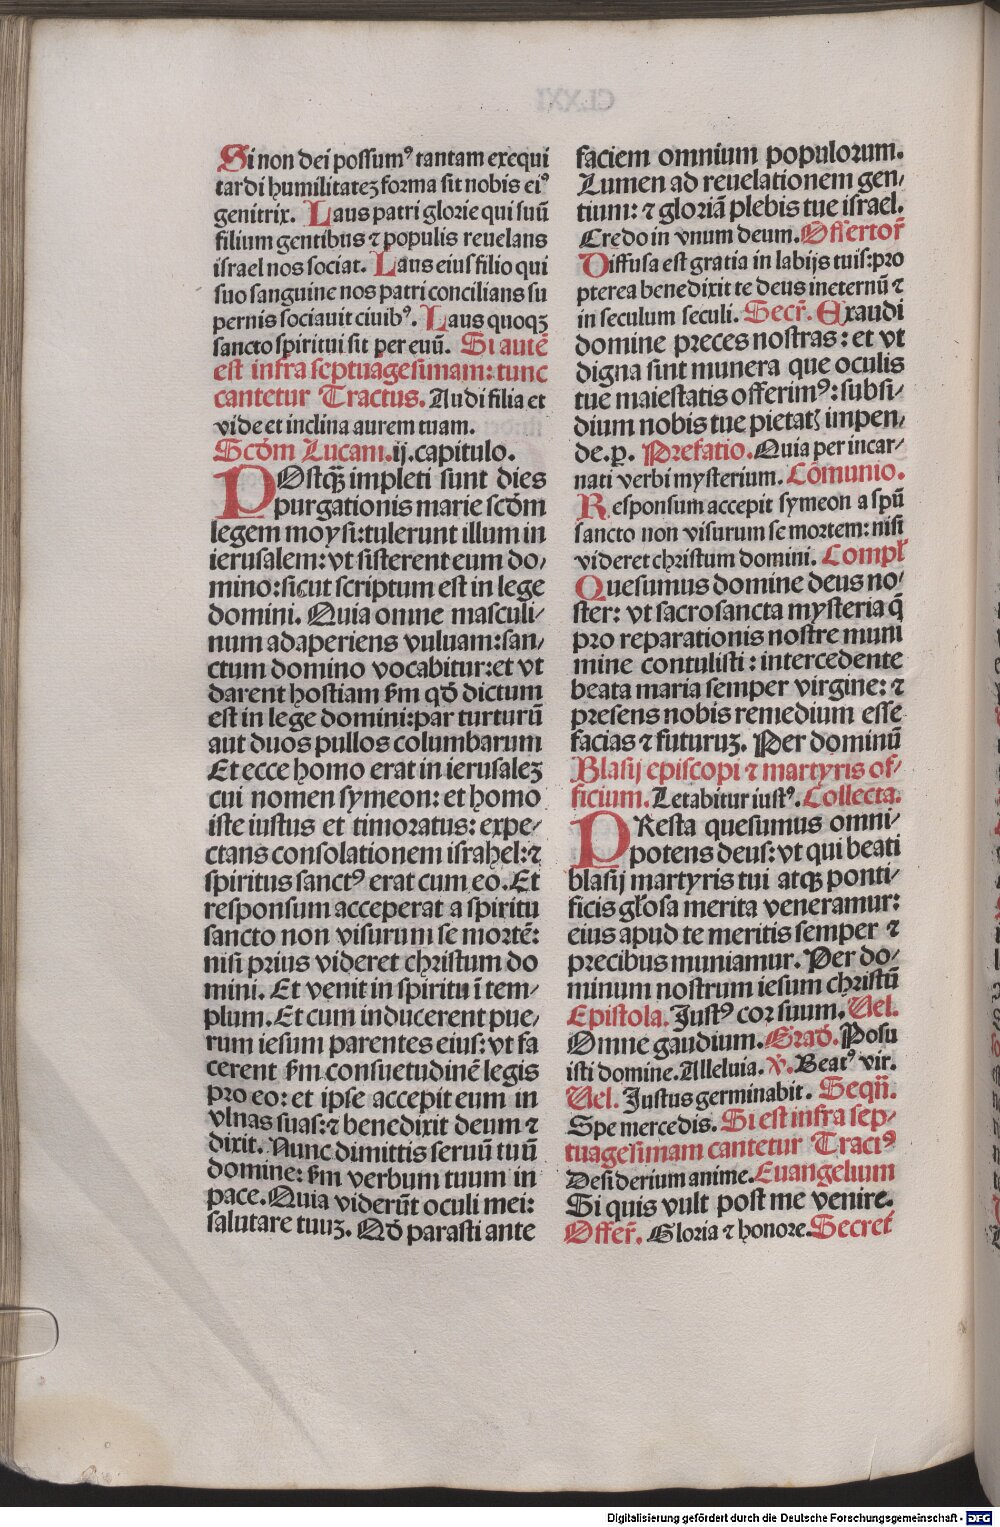 Si non dei possumꝰ tantam exequi
tardi humilitateꝫ forma sit nobis eiꝰ
genitrix. Laus patri glorie qui suū
filium gentibus ⁊ populis reuelans
israel nos sociat. Laus eius filio qui
suo sanguine nos patri concilians su
pernis sociauit ciuibꝰ. Laus quoqꝫ
sancto spiritui sit per euū. Si autē
est infra septuagesimam: tunc
cantetur Tractus. Audi filia et
vide et inclina aurem tuam.
Scd̄m Lucam. ij. capitulo.
POstqꝫ̄ impleti sunt dies
purgationis marie scd̄m
legem moysi: tulerunt illum in
ierusalem: vt sisterent eum do⸗
mino: sicut scriptum est in lege
domini. Quia omne masculi⸗
num adaperiens vuluam: san⸗
ctum domino vocabitur: et vt
darent hostiam s̄m qd̄ dictum
est in lege domini: par turturū
aut duos pullos columbarum
Et ecce homo erat in ierusaleꝫ
cui nomen symeon: et homo
iste iustus et timoratus: expe⸗
ctans consolationem israhel: ⁊
spiritus sanctꝰ erat cum eo. Et
responsum acceperat a spiritu
sancto non visurum se mortē:
nisi prius videret christum do
mini. Et venit in spiritu ī tem⸗
plum. Et cum inducerent pue⸗
rum iesum parentes eius: vt fa
cerent s̄m consuetudinē legis
pro eo: et ipse accepit eum in
vlnas suas: ⁊ benedixit deum ⁊
dixit. Nunc dimittis seruū tuū
domine: s̄m verbum tuum in
pace. Quia viderūt oculi mei:
salutare tuuꝫ. Qd̄ parasti ante
faciem omnium populorum.
Lumen ad reuelationem gen⸗
tium: ⁊ gloriā plebis tue israel.
Credo in vnum deum. Offertor̄
Diffusa est gratia in labijs tuis: pro
pterea benedixit te deus ineternū ⁊
in seculum seculi. Secr̄. Exaudi
domine preces nostras: et vt
digna sint munera que oculis
tue maiestatis offerimꝰ: subsi⸗
dium nobis tue pietatꝭ impen⸗
de. ꝑ. Prefatio. Quia per incar⸗
nati verbi mysterium. Cōmunio.
Responsum accepit symeon a spū
sancto non visurum se mortem: nisi
videret christum domini. Compł
Quesumus domine deus no⸗
ster: vt sacrosancta mysteria q̄
pro reparationis nostre muni
mine contulisti: intercedente
beata maria semper virgine: ⁊
presens nobis remedium esse
facias ⁊ futuruꝫ. Per dominū
Blasij episcopi ⁊ martyris of⸗
ficium. Letabitur iustꝰ. Collecta.
PResta quesumus omni⸗
potens deus: vt qui beati
blasij martyris tui atqꝫ ponti⸗
ficis gl̄osa merita veneramur:
eius apud te meritis semper ⁊
precibus muniamur. Per do⸗
minum nostrum iesum christū
Epistola. Justꝰ cor suum. Uel.
Omne gaudium. Grad̄. Posu
isti domine. Alleluia. ꝟ. Beatꝰ vir.
Uel. Justus germinabit. Seqn̄.
Spe mercedis. Si est infra sep⸗
tuagesimam cantetur Tractꝰ
Desiderium anime. Euangelium
Si quis vult post me venire.
Offer̄. Gloria ⁊ honore. Secret̄
Digitalisierung gefördert durch die Deutsche Forschungsgemeinschaft - DFG